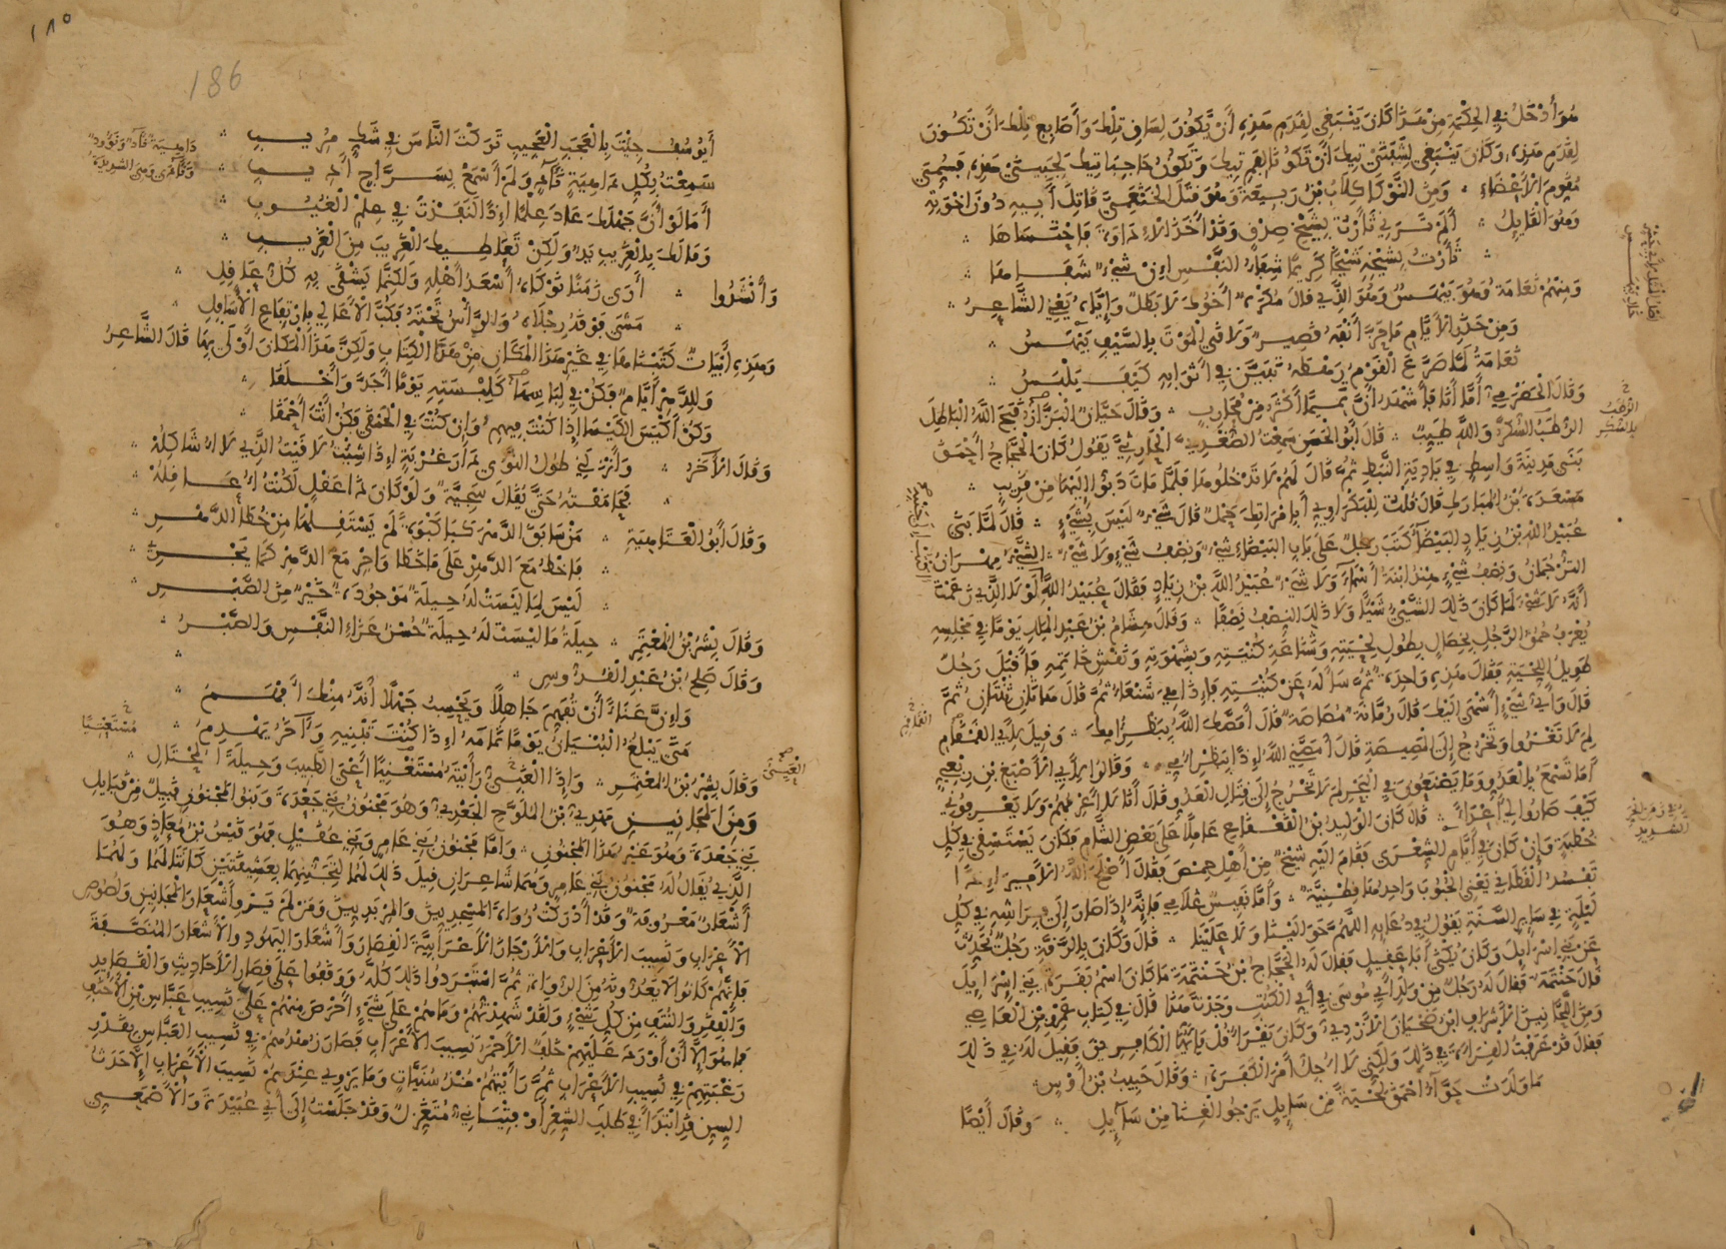 هو أدخل في الحكمة من هذا كان ينبغي لقدم هذه أن يكون لسان تلك وأصابع تلك أن تكون
لقدم هذه وكان ينبغي لشفتي تيك أن تكونا لفم تيك وتكون حاجبا تيك لجبيني هذه فسمي
مقوم الأعضاء ومن النوكا كلاب بن ربيعة وهو قتل الخثعمي قاتل أبيه دون إخوته
وهو القايل ألم ترني ثأرت بشيخ صدق وقد أخذ الإداوة فاحتساها
ثأرت بشيخه شيخا كريما شفاء النفس إن شيء شفاها
ومنهم نعامة وهو بيهس وهو الذي قال مكره أخوك لا بطل وإياه يعني الشاعر
ومن حذر الأيام ما حز أنفه قصير ولاقى الموت بالسيف بيهس
نعامة لما صرع القوم رهطه تبين في أثوابه كيف يلبس
وقال الحضرمي أما أنا فأشهد أن تميما أكثر من محارب وقال حيان البزاز قبح الله الباطل
الرطب السكر والله طيب قال أبو الحسن سمعت الصغدي الحارثي يقول كان الحجاج أحمق
بنى مدينة واسط في بادية النبط ثم قال لهم لا تدخلوها فلما مات دبوا إليها من قريب
مسعدة بن المبارك قال قلت للبكراوي أبامراتك حبل قال شيء ليس بشيء قال لما بنى
عبيد الله بن زياد البيضا كتب رجل على باب البيضاء شيء ونصف شيء ولا شيء الشيء مهران
الترجمان ونصف شيء هند ابنة أسماء ولا شيء عبيد الله بن زياد فقال عبيد الله لولا الذي زعمت
أنه لا شيء لما كان ذلك الشيء شيا ولا ذلك النصف نصفا وقال هشام بن عبد الملك يوما في مجلسه
يعرف حمق الرجل بخصال بطول لحيته وشناعة كنيته وبشهوته ونقش خاتمه فأقبل رجل
طويل اللحية فقال هذه واحدة ثم سأله عن كنيته فإذا هي شنعاء ثم قال هاتان ثنتان ثم
قال وأي شيء أشهى إليك قال رمانة مصاصة قال أمصك الله ببظر أمك وقيل لأبي القمقام
لم لا تغزوا وتخرج إلى المصيصة قال أمصني الله إذا ببظر أمي وقالوا لأبي الأصبغ بن ربعي
أما تسمع بالعدو وما يصنعون في البحر لم لا تخرج إلى قتال العدو وقال أنا لا أعرفهم ولا يعرفوني
كيف صاروا لي أعداء قال كان الوليد بن القعقاع عاملا على بعض الشام فكان يستسقي في كل
خطبة وإن كان في أيام الشعرى فقام إليه شيخ من أهل حمص فقال أصلح الله الأمير إذا
تفسد القطاني يعني الحبوب واحدها قطنية وأما نفيس غلامي فإنه إذا صار إلى فراشه في كل
ليلة في ساير السنة يقول في دعايه اللهم حوالينا ولا علينا قال وكان بالرقة رجل يحدث
عن بني إسرايل وكان يكنى أبا عقيل فقال له الحجاج بن حنتمة ما كان اسم بقرة بني إسرايل
قال حنتمة فقال له رجل من ولد أبي موسى في أي الكتب وجدت هذا قال في كتاب عمرو بن العاص
ومن المجانين الأشراف ابن ضحيان الأزدي وكان يقرا قل يا أيها الكافرين فقيل له في ذلك
فقال قد عرفت القراءة في ذلك ولكني لا أجل أمر الكفرة وقال حبيب بن أوس
ما ولدت حواء أحمق لحية من سايل يرجو الغنا من سآيل وقال أيضا
أيوسف جيت بالعجب العجيب تركت الناس في شك مريب
سمعت بكل داهية نآد ولم أسمع بسراج أديب
أما لو أن جهلك عاد علما إذا لنفذت في علم الغيوب
وما لك بالغريب يد ولكن تعاطيك الغريب من الغريب
وأنشدوا أرى زمنا نوكاه أسعد أهله ولكنما يشقى به كل عاقل
مشى فوقه رجلاه والرأس تحته فكب الأعالي بارتفاع الأسافل
وهذه أبيات كتبناها في غير هذا المكان من هذا الكتاب ولكن هذا المكان أولى بها قال الشاعر
وللدهر أيام فكن في لباسها كلبسته يوما أجد وأخلقا
وكن أكيس الكيسا إذا كنت فيهم وإن كنت في الحمقى فكن أنت أحمقا
وقال الآخر وأنزلني طول النوى دار غربة إذا شيت لاقيت الذي لا أشاكله
فحامقته حتى يقال سجية ولو كان ذا عقل لكنت أعاقله
وقال أبو العتاهية من سابق الدهر كبا كبوة لم يستقلها من خطا الدهر
فاخط مع الدهر على ما خطا واجر مع الدهر كما يجري
ليس لما ليست له حيلة موجودة خير من الصبر
وقال بشر بن المعتمر حيلة ما ليست له حيلة حسن عزاء النفس والصبر
وقال صلح بن عبد القدوس
وإن عناء أن تفهم جاهلا ويحسب جهلا أنه منك أفهم
متى يبلغ البنيان يوما تمامه إذا كنت تبنيه وآخر يهدم
وقال بشر بن المعتمر وإذا الغبي رأيته مستغنيا أعيى الطبيب وحيلة المحتال
ومن المجانين مهدي بن الملوح الجعدي وهو مجنون بني جعدة وبنو المجنون قبيل من قبايل
بني جعدة وهو غير هذا المجنون وأما مجنون بني عامر وبني عقيل فهو قيس بن معاذ وهو
الذي يقال له مجنون بني عامر وهما شاعران قيل ذلك لهما لتجننهما بعشيقتين كانتا لهما ولهما
أشعار معروفة وقد أدركت رواة المسجديين والمربديين ومن لم يرو أشعار المجانين ولصوص
الأعراب ونسيب الأعراب والأرجاز الأعرابية القصار وأشعار اليهود والأشعار المنصفة
فإنهم كانوا لا يعدونه من الرواة ثم استبردوا ذلك كله ووقفوا على قصار الأحاديث والقصايد
والفقر والنتف من كل شيء ولقد شهدتهم وما هم على شيء أحرص منهم على نسيب عباس بن الأحنف
فما هو إلا أن أورد عليهم خلف الأحمر نسيب الأعراب فصار زهدهم في نسيب العباس بقدر
رغبتهم في نسيب الأعراب ثم رأيتهم منذ سنيات وما يروي عندهم نسيب الأعراب إلا حدث
السن قد ابتدأ في طلب الشعر أو فتياني متغزل وقد جلست إلى أبي عبيدة والأصمعي
186
١٨٥